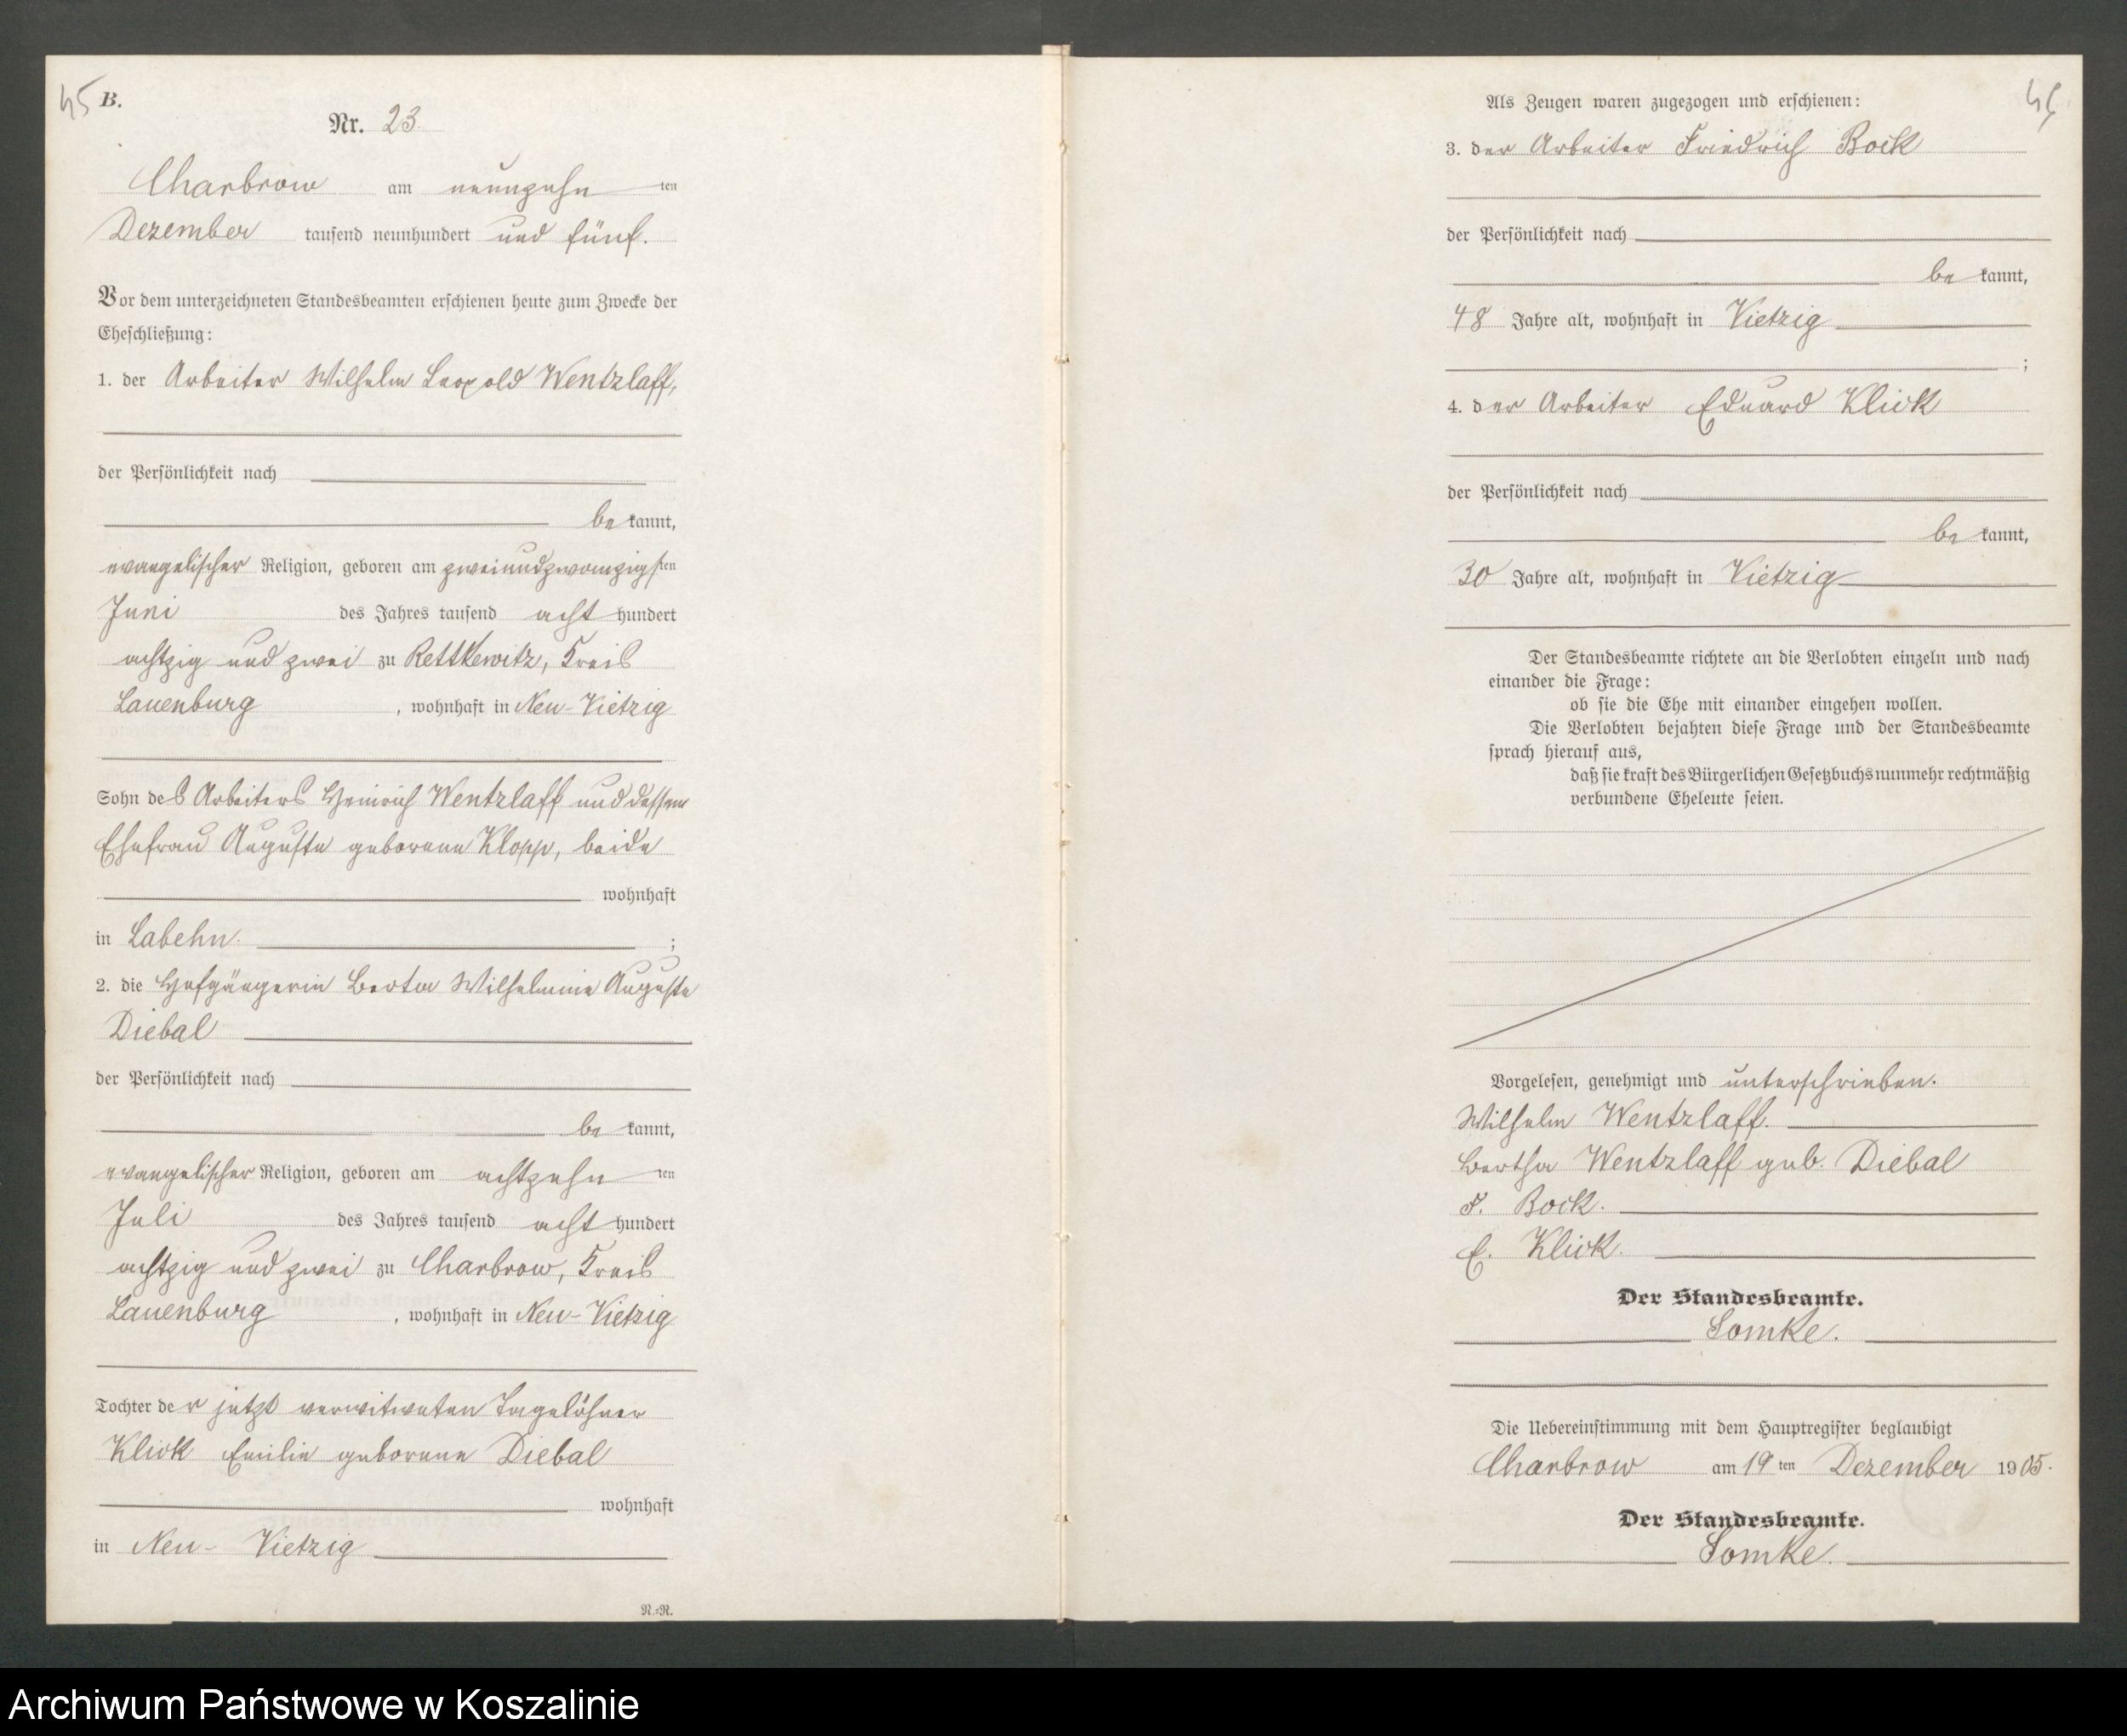 45
B.
Nr. 23.
Charbrow am neunzehn ten
Dezember tausend neunhundert und fünf.
Vor dem unterzeichneten Standesbeamten erschienen heute zum Zwecke der
Eheschließung:
1. der Arbeiter Wilhelm Leopold Wentzlaff,
der Persönlichkeit nach
be kannt,
evangelischer Religion, geboren am zweiundzwanzigsten
Juni des Jahres tausend acht hundert
achtzig und zwei zu Rettkewitz, Kreis
Lauenburg, wohnhaft in Neu-Vietzig
Sohn des Arbeiters Heinrich Wentzlaff und dessen
Ehefrau Auguste geborene Klopp, beide
wohnhaft
in Labehn. ;
2. die Hofgängerin Berta Wilhelmine Auguste
Diebal
der Persönlichkeit nach
be kannt,
evangelischer Religion, geboren am achtzehn ten
Juli des Jahres tausend acht hundert
achtzig und zwei zu Charbrow, Kreis
Lauenburg, wohnhaft in Neu-Vietzig
Tochter der jetzt verwitweten Tagelöhner
Klick Emilie geborene Diebal
wohnhaft
in Neu-Vietzig
N.=N.
Als Zeugen waren zugezogen und erschienen:
3. der Arbeiter Friedrich Bock
der Persönlichkeit nach
be kannt,
48 Jahre alt, wohnhaft in Vietzig
;
4. der Arbeiter Eduard Klick
der Persönlichkeit nach
be kannt,
30 Jahre alt, wohnhaft in Vietzig
Der Standesbeamte richtete an die Verlobten einzeln und nach
einander die Frage:
ob sie die Ehe mit einander eingehen wollen.
Die Verlobten bejahten diese Frage und der Standesbeamte
sprach hierauf aus,
daß sie kraft des Bürgerlichen Gesetzbuchs nunmehr rechtmäßig
verbundene Eheleute seien.
Vorgelesen, genehmigt und unterschrieben.
Wilhelm Wentzlaff.
Bertha Wentzlaff geb. Diebal
F. Bock.
E. Klick.
Der Standesbeamte.
Lomke.
Die Uebereinstimmung mit dem Hauptregister beglaubigt
Charbrow am 19 ten Dezember 1905.
Der Standesbeamte.
Lomke.
Archiwum Państwowe w Koszalinie